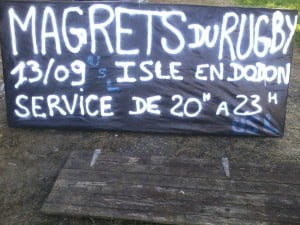 MAGRETS DU RUGBY
13/09 USL ISLE EN DODON
SERVICE DE 20H A 23H
USL